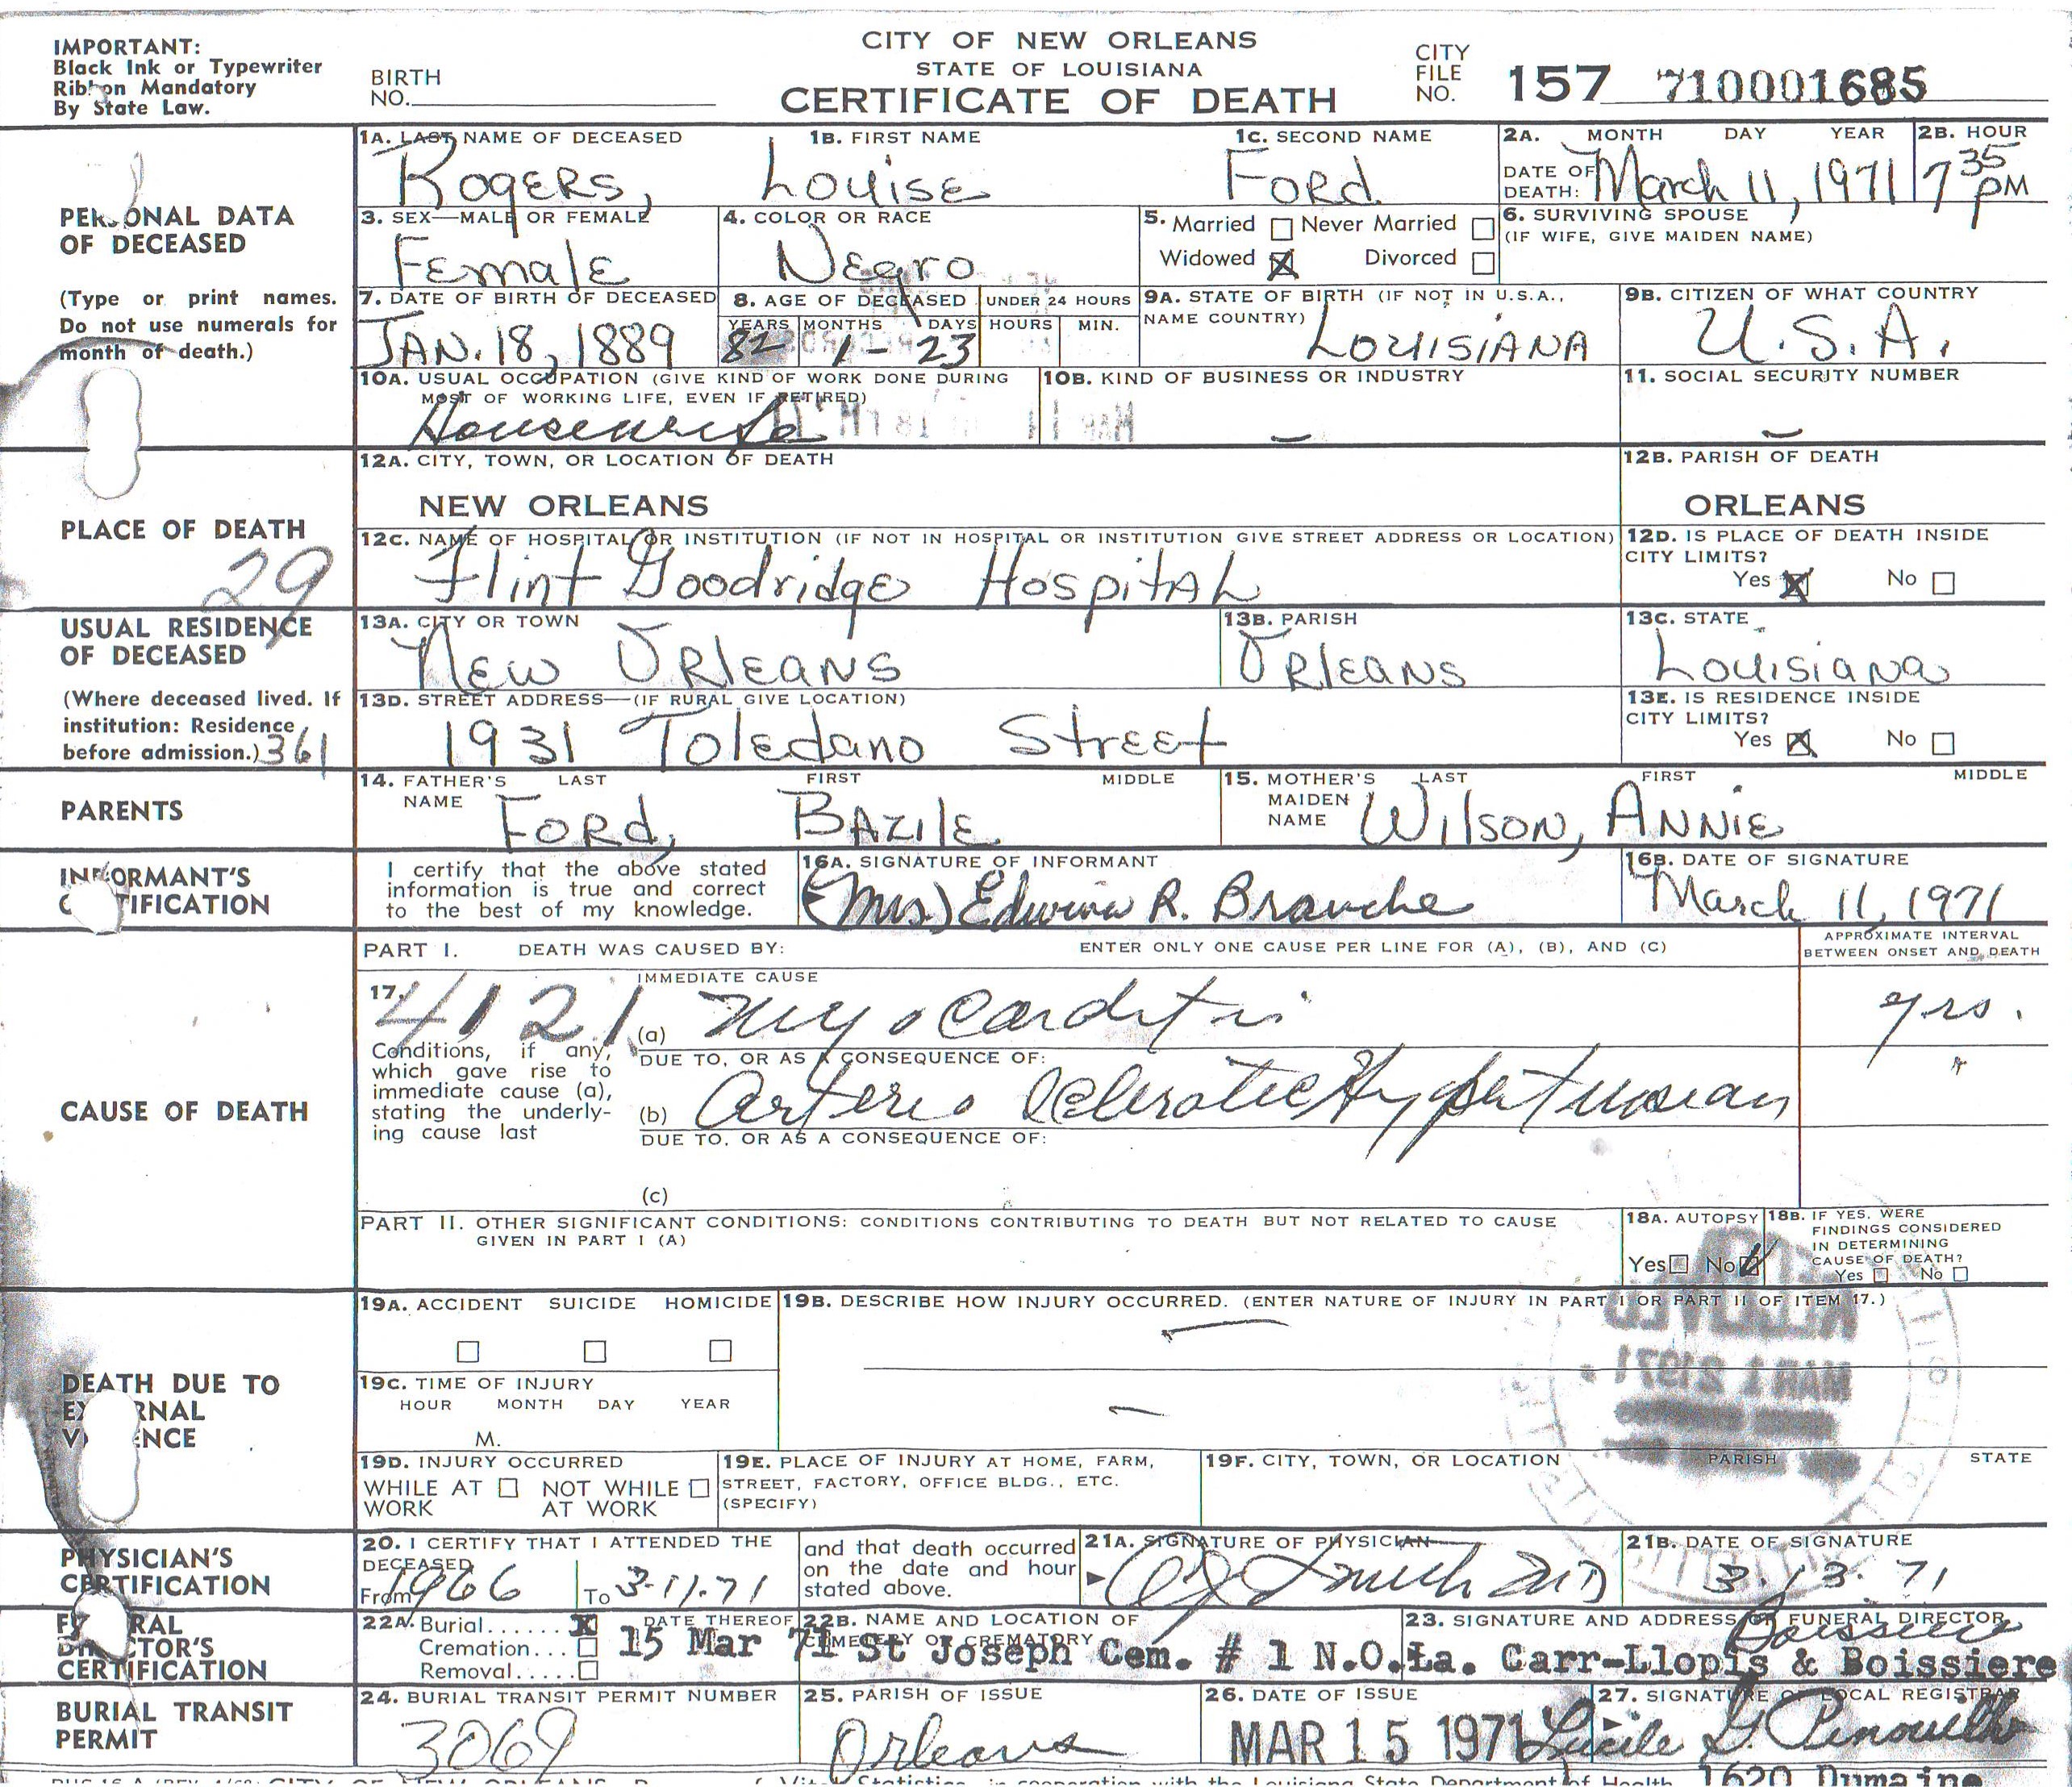 IMPORTANT:
Black Ink or Typewriter
Ribbon Mandatory
By State Law.
BIRTH
NO.
CITY OF NEW ORLEANS
STATE OF LOUISIANA
CERTIFICATE OF DEATH
CITY
FILE
NO. 157 710001685
PERSONAL DATA
OF DECEASED
(Type or print names.
Do not use numerals for
month of death.)
1A. LAST NAME OF DECEASED 1B. FIRST NAME 1C. SECOND NAME
Rogers, Louise Ford
2A. MONTH DAY YEAR
DATE OF
DEATH: March 11, 1971
2B. HOUR
7 35 PM
3. SEX—MALE OR FEMALE
Female
4. COLOR OR RACE
Negro
5. Married Never Married
Widowed X Divorced
6. SURVIVING SPOUSE
(IF WIFE, GIVE MAIDEN NAME)
7. DATE OF BIRTH OF DECEASED
JAN. 18, 1889
8. AGE OF DECEASED UNDER 24 HOURS
YEARS MONTHS DAYS HOURS MIN.
82 1 - 23
9A. STATE OF BIRTH (IF NOT IN U.S.A.,
NAME COUNTRY)
LOUISIANA
9B. CITIZEN OF WHAT COUNTRY
U.S.A.
10A. USUAL OCCUPATION (GIVE KIND OF WORK DONE DURING
MOST OF WORKING LIFE, EVEN IF RETIRED)
Housewife
10B. KIND OF BUSINESS OR INDUSTRY
–
11. SOCIAL SECURITY NUMBER
–
PLACE OF DEATH
29
12A. CITY, TOWN, OR LOCATION OF DEATH
NEW ORLEANS
12B. PARISH OF DEATH
ORLEANS
12C. NAME OF HOSPITAL OR INSTITUTION (IF NOT IN HOSPITAL OR INSTITUTION GIVE STREET ADDRESS OR LOCATION)
Flint Goodridge Hospital
12D. IS PLACE OF DEATH INSIDE
CITY LIMITS?
Yes X No
USUAL RESIDENCE
OF DECEASED
(Where deceased lived. If
institution: Residence
before admission.) 361
13A. CITY OR TOWN
New Orleans
13B. PARISH
Orleans
13C. STATE
Louisiana
13D. STREET ADDRESS—(IF RURAL GIVE LOCATION)
1931 Toledano Street
13E. IS RESIDENCE INSIDE
CITY LIMITS?
Yes X No
PARENTS
14. FATHER'S LAST FIRST MIDDLE
NAME Ford, Bazile
15. MOTHER'S LAST FIRST MIDDLE
MAIDEN
NAME Wilson, Annie
INFORMANT'S
CERTIFICATION
I certify that the above stated
information is true and correct
to the best of my knowledge.
16A. SIGNATURE OF INFORMANT
(Mrs) Edwina R. Branche
16B. DATE OF SIGNATURE
March 11, 1971
CAUSE OF DEATH
PART I. DEATH WAS CAUSED BY: ENTER ONLY ONE CAUSE PER LINE FOR (A), (B), AND (C)
APPROXIMATE INTERVAL
BETWEEN ONSET AND DEATH
17. 4121
IMMEDIATE CAUSE
(a) Myocarditis yrs.
Conditions, if any,
which gave rise to
immediate cause (a),
stating the underly-
ing cause last
DUE TO, OR AS A CONSEQUENCE OF:
(b) Arterio Sclerotic Hypertension "
DUE TO, OR AS A CONSEQUENCE OF:
(c)
PART II. OTHER SIGNIFICANT CONDITIONS: CONDITIONS CONTRIBUTING TO DEATH BUT NOT RELATED TO CAUSE
GIVEN IN PART I (A)
18A. AUTOPSY
Yes No
18B. IF YES, WERE
FINDINGS CONSIDERED
IN DETERMINING
CAUSE OF DEATH?
Yes No
DEATH DUE TO
EXTERNAL
VIOLENCE
19A. ACCIDENT SUICIDE HOMICIDE
19B. DESCRIBE HOW INJURY OCCURRED. (ENTER NATURE OF INJURY IN PART I OR PART II OF ITEM 17.)
19C. TIME OF INJURY
HOUR MONTH DAY YEAR
M.
RECEIVED
MAR 12 1971
19D. INJURY OCCURRED
WHILE AT NOT WHILE
WORK AT WORK
19E. PLACE OF INJURY AT HOME, FARM,
STREET, FACTORY, OFFICE BLDG., ETC.
(SPECIFY)
19F. CITY, TOWN, OR LOCATION PARISH STATE
PHYSICIAN'S
CERTIFICATION
20. I CERTIFY THAT I ATTENDED THE
DECEASED
From 1966 To 3-11-71
and that death occurred
on the date and hour
stated above.
21A. SIGNATURE OF PHYSICIAN
Smith MD
21B. DATE OF SIGNATURE
3.13.71
FUNERAL
DIRECTOR'S
CERTIFICATION
22A. Burial...... X DATE THEREOF
Cremation... 15 Mar 71
Removal.....
22B. NAME AND LOCATION OF
CEMETERY OR CREMATORY
St Joseph Cem. # 1 N.O.La.
23. SIGNATURE AND ADDRESS OF FUNERAL DIRECTOR
Boissiere
Carr-Llopis & Boissiere
BURIAL TRANSIT
PERMIT
24. BURIAL TRANSIT PERMIT NUMBER
3069
25. PARISH OF ISSUE
Orleans
26. DATE OF ISSUE
MAR 15 1971
27. SIGNATURE OF LOCAL REGISTRAR
Lucile G.
1620 Dumaine